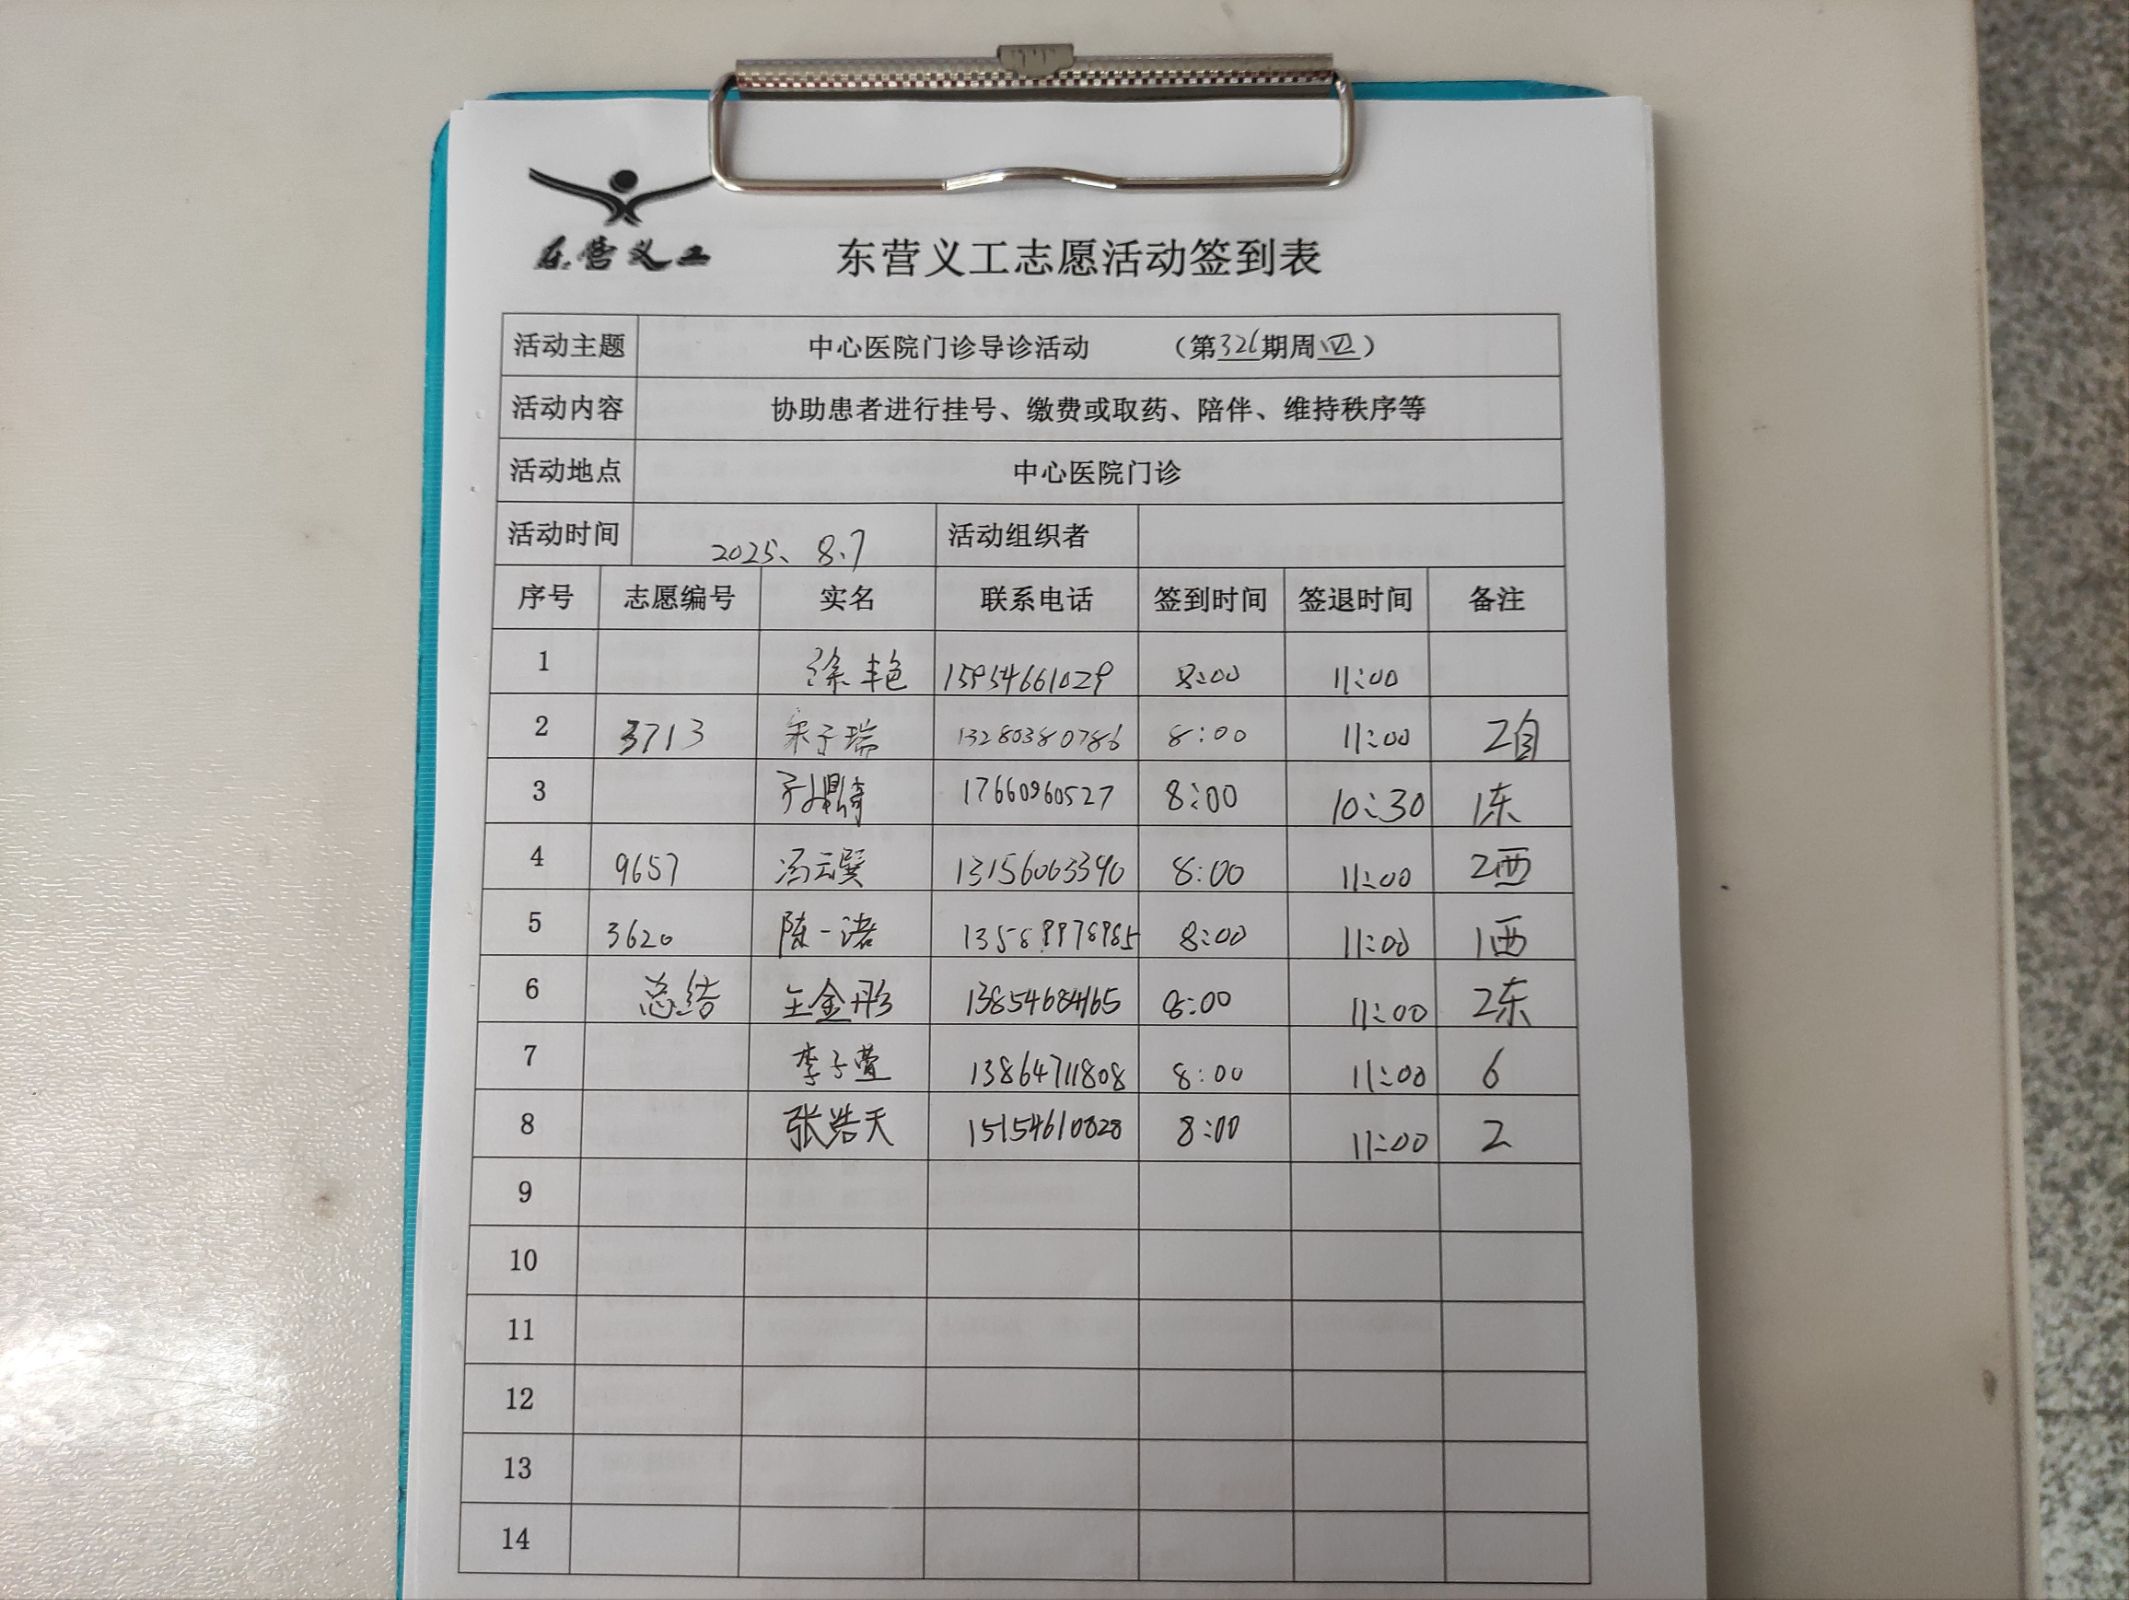 东营义工
东营义工志愿活动签到表
活动主题 中心医院门诊导诊活动 （第326期周四）
活动内容 协助患者进行挂号、缴费或取药、陪伴、维持秩序等
活动地点 中心医院门诊
活动时间 2025、8、7 活动组织者
序号 志愿编号 实名 联系电话 签到时间 签退时间 备注
1 徐丰艳 15954661029 8:00 11:00
2 3713 朱子瑞 13280380786 8:00 11:00 2自
3 17660960527 8:00 10:30 1东
4 9657 冯云巽 13156063390 8:00 11:00 2西
5 3620 陈一诺 8:00 11:00 1西
6 总结 王金彤 13854684165 8:00 11:00 2东
7 李子萱 13864711808 8:00 11:00 6
8 张浩天 15154610828 8:00 11:00 2
9
10
11
12
13
14